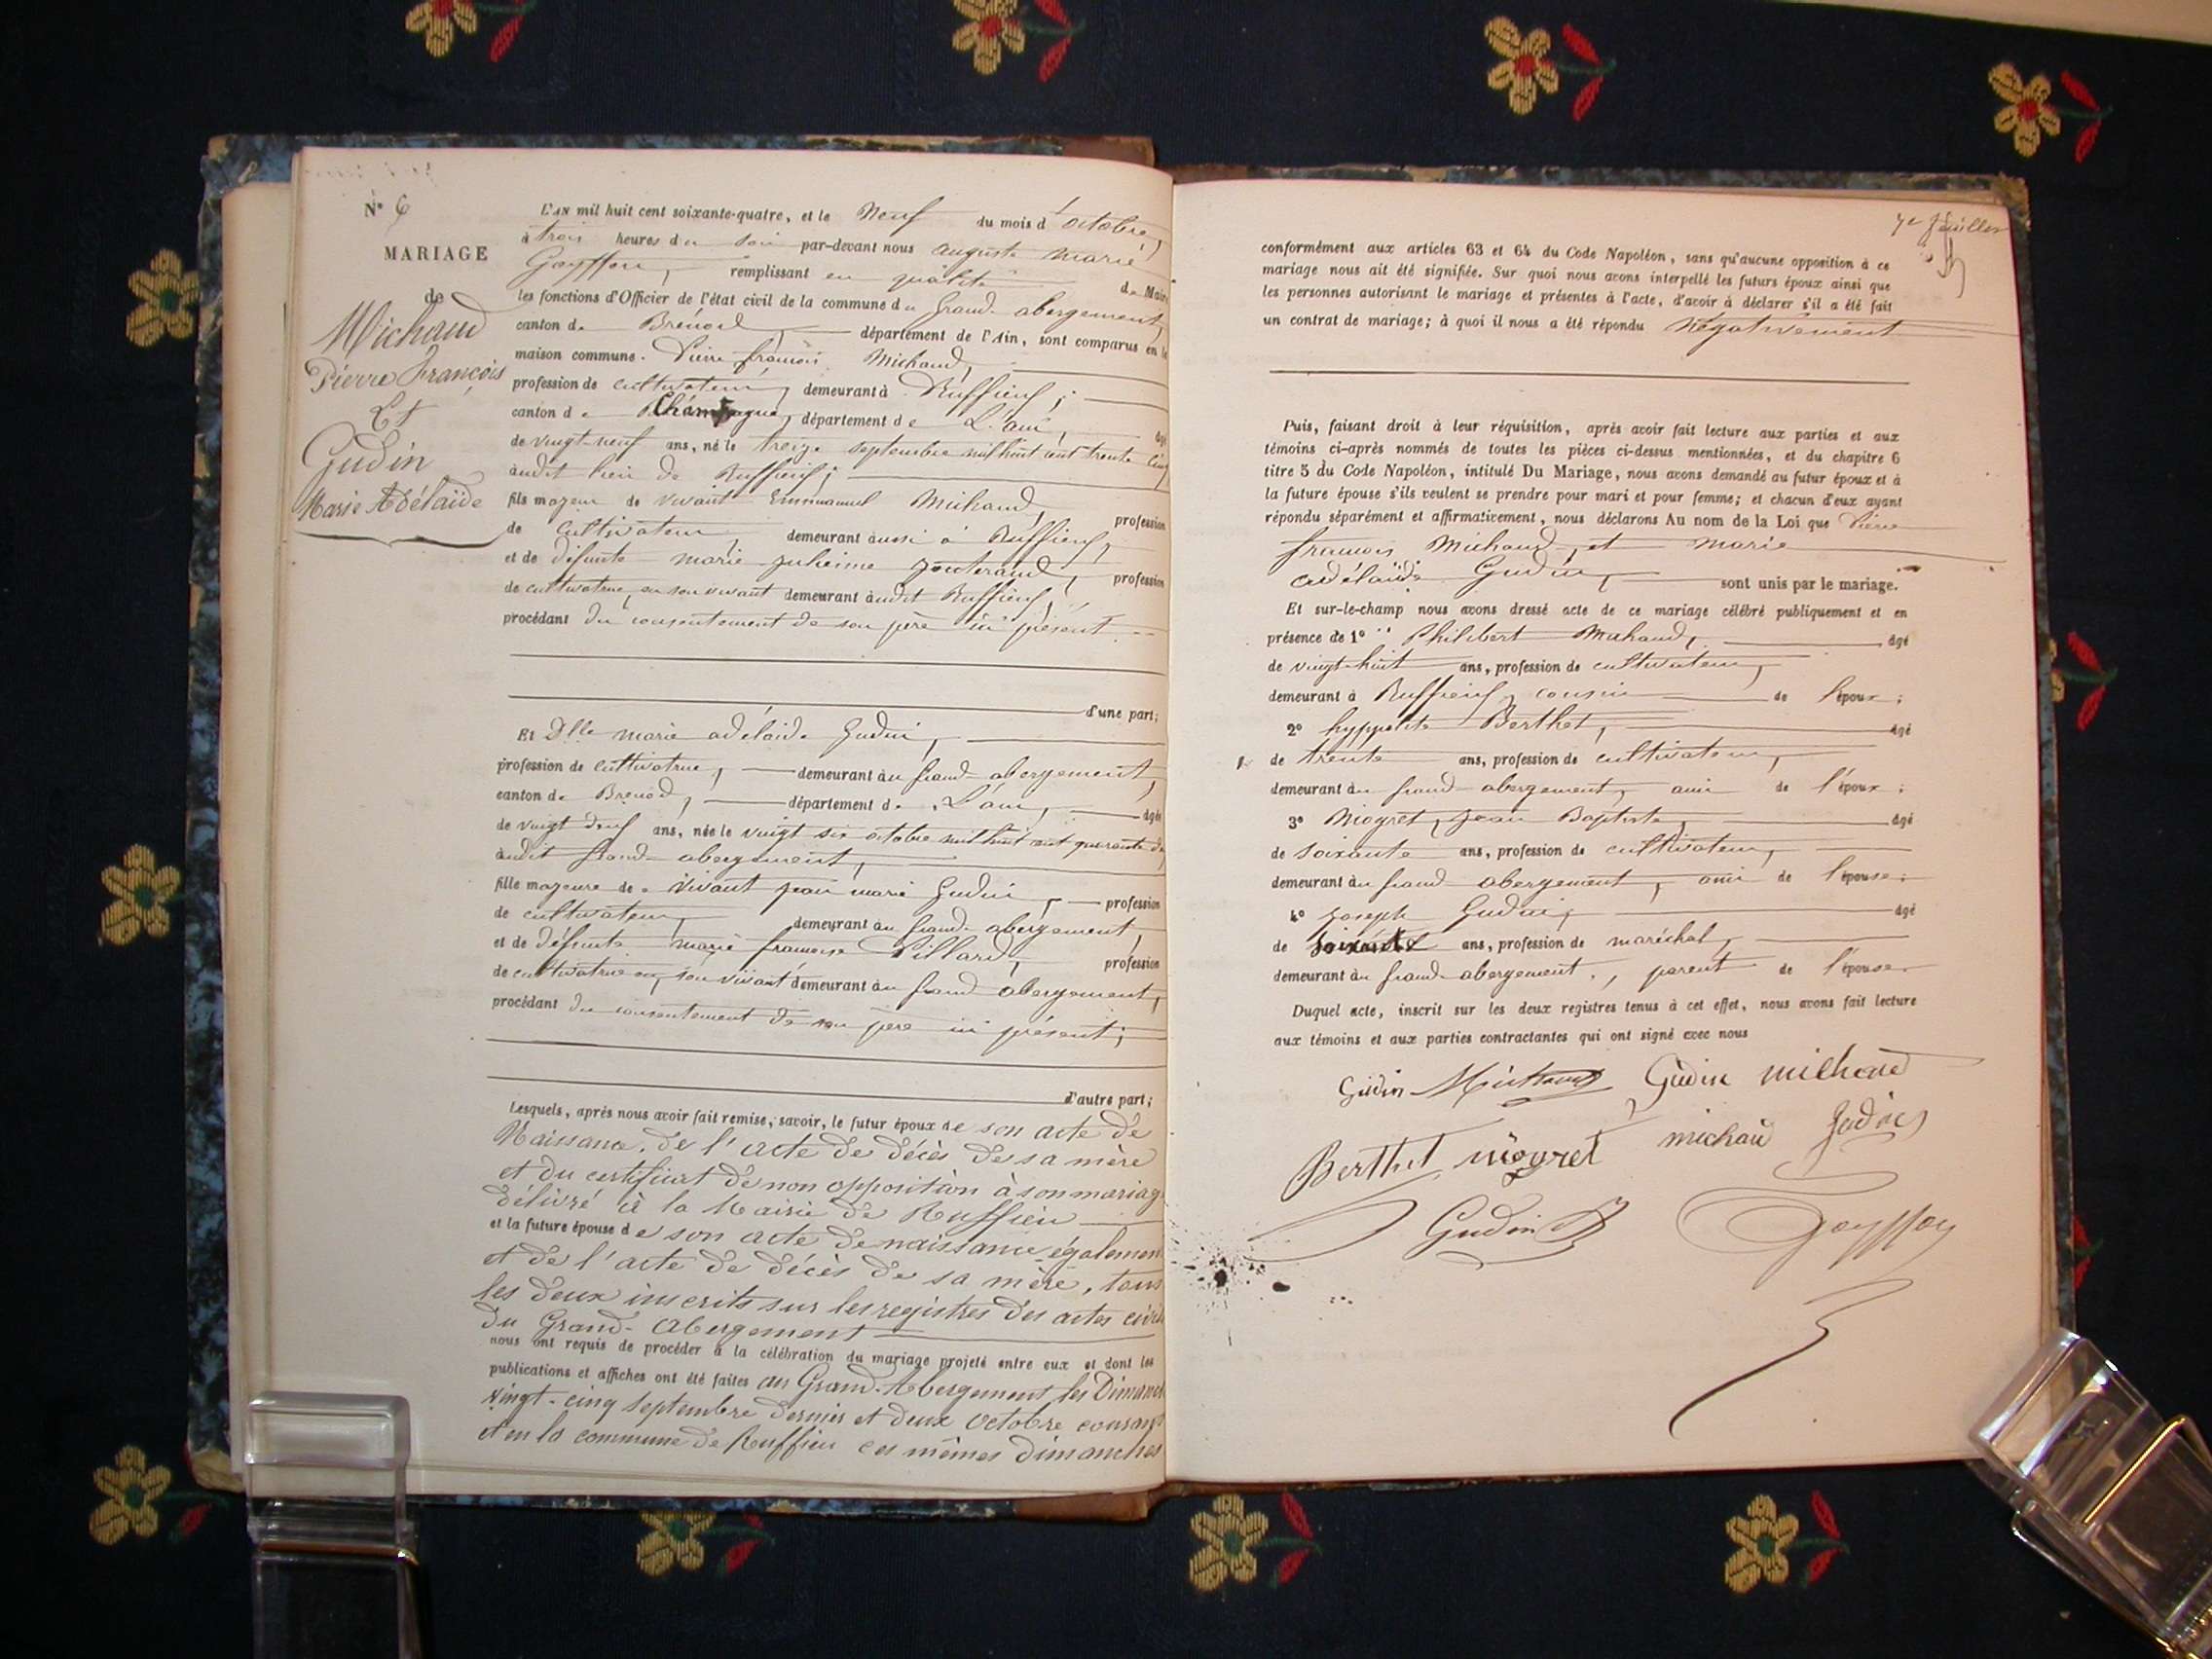 N° 6
MARIAGE
de
Michaud
Pierre François
Et
Gudin
Marie Adélaïde
L'AN mil huit cent soixante-quatre, et le Neuf du mois d'octobre,
à trois heures du soir par-devant nous auguste marie
Gayffon, remplissant en qualité de Maire
les fonctions d'Officier de l'état civil de la commune du Grand-abergement,
canton de Brénod, département de l'Ain, sont comparus en la
maison commune. Pierre françois Michaud,
profession de cultivateur, demeurant à Ruffieuf;
canton de Champagne, département de L'ain, âgé
de vingt-neuf ans, né le treize septembre mil huit cent trente cinq
audit lieu de Ruffieuf;
fils majeur de vivant Emmanuel Michaud, profession
de cultivateur, demeurant aussi à Ruffieuf,
et de défunte marie julienne profession
de cultivatrice en son vivant demeurant audit Ruffieuf,
procédant du consentement de son père ici présent
d'une part;
Et Dlle marie adélaïde Gudin,
profession de cultivatrice, demeurant au grand-abergement,
canton de Brénod, département de L'ain, âgée
de vingt deux ans, née le vingt six octobre mil huit cent quarante deux
audit grand-abergement,
fille majeure de vivant jean marie Gudin, profession
de cultivateur, demeurant au grand-abergement,
et de défunte marie françoise Pillard, profession
de cultivatrice en son vivant demeurant au grand abergement,
procédant du consentement de son père ici présent;
d'autre part;
Lesquels, après nous avoir fait remise, savoir, le futur époux de son acte de
Naissance, de l'acte de décès de sa mère
et du certificat de non opposition à son mariage
délivré à la Mairie de Ruffieu
et la future épouse de son acte de naissance également
et de l'acte de décès de sa mère, tous
les deux inscrits sur les registres des actes civils
du Grand-Abergement
nous ont requis de procéder à la célébration du mariage projeté entre eux et dont les
publications et affiches ont été faites au Grand-Abergement les Dimanches
vingt-cinq septembre dernier et deux octobre courant
et en la commune de Ruffieu ces mêmes dimanches
conformément aux articles 63 et 64 du Code Napoléon, sans qu'aucune opposition à ce
mariage nous ait été signifiée. Sur quoi nous avons interpellé les futurs époux ainsi que
les personnes autorisant le mariage et présentes à l'acte, d'avoir à déclarer s'il a été fait
un contrat de mariage; à quoi il nous a été répondu Négativement
Puis, faisant droit à leur réquisition, après avoir fait lecture aux parties et aux
témoins ci-après nommés de toutes les pièces ci-dessus mentionnées, et du chapitre 6
titre 5 du Code Napoléon, intitulé Du Mariage, nous avons demandé au futur époux et à
la future épouse s'ils veulent se prendre pour mari et pour femme; et chacun d'eux ayant
répondu séparément et affirmativement, nous déclarons Au nom de la Loi que Pierre
françois Michaud, et marie
adélaïde Gudin, sont unis par le mariage.
Et sur-le-champ nous avons dressé acte de ce mariage célébré publiquement et en
présence de 1° Philibert Michaud, âgé
de vingt-huit ans, profession de cultivateur,
demeurant à Ruffieuf, cousin de l'époux;
2° hyppolite Berthet, âgé
de trente ans, profession de cultivateur,
demeurant au grand-abergement, ami de l'époux;
3° Niogret, jean Baptiste, âgé
de soixante ans, profession de cultivateur,
demeurant au grand abergement, ami de l'épouse;
4° joseph Gudin, âgé
de soixante ans, profession de maréchal,
demeurant au grand-abergement, parent de l'épouse.
Duquel acte, inscrit sur les deux registres tenus à cet effet, nous avons fait lecture
aux témoins et aux parties contractantes qui ont signé avec nous
Gudin Michaud Gudin michaud
Berthet niogret michaud Gudin
Gudin Gayffon